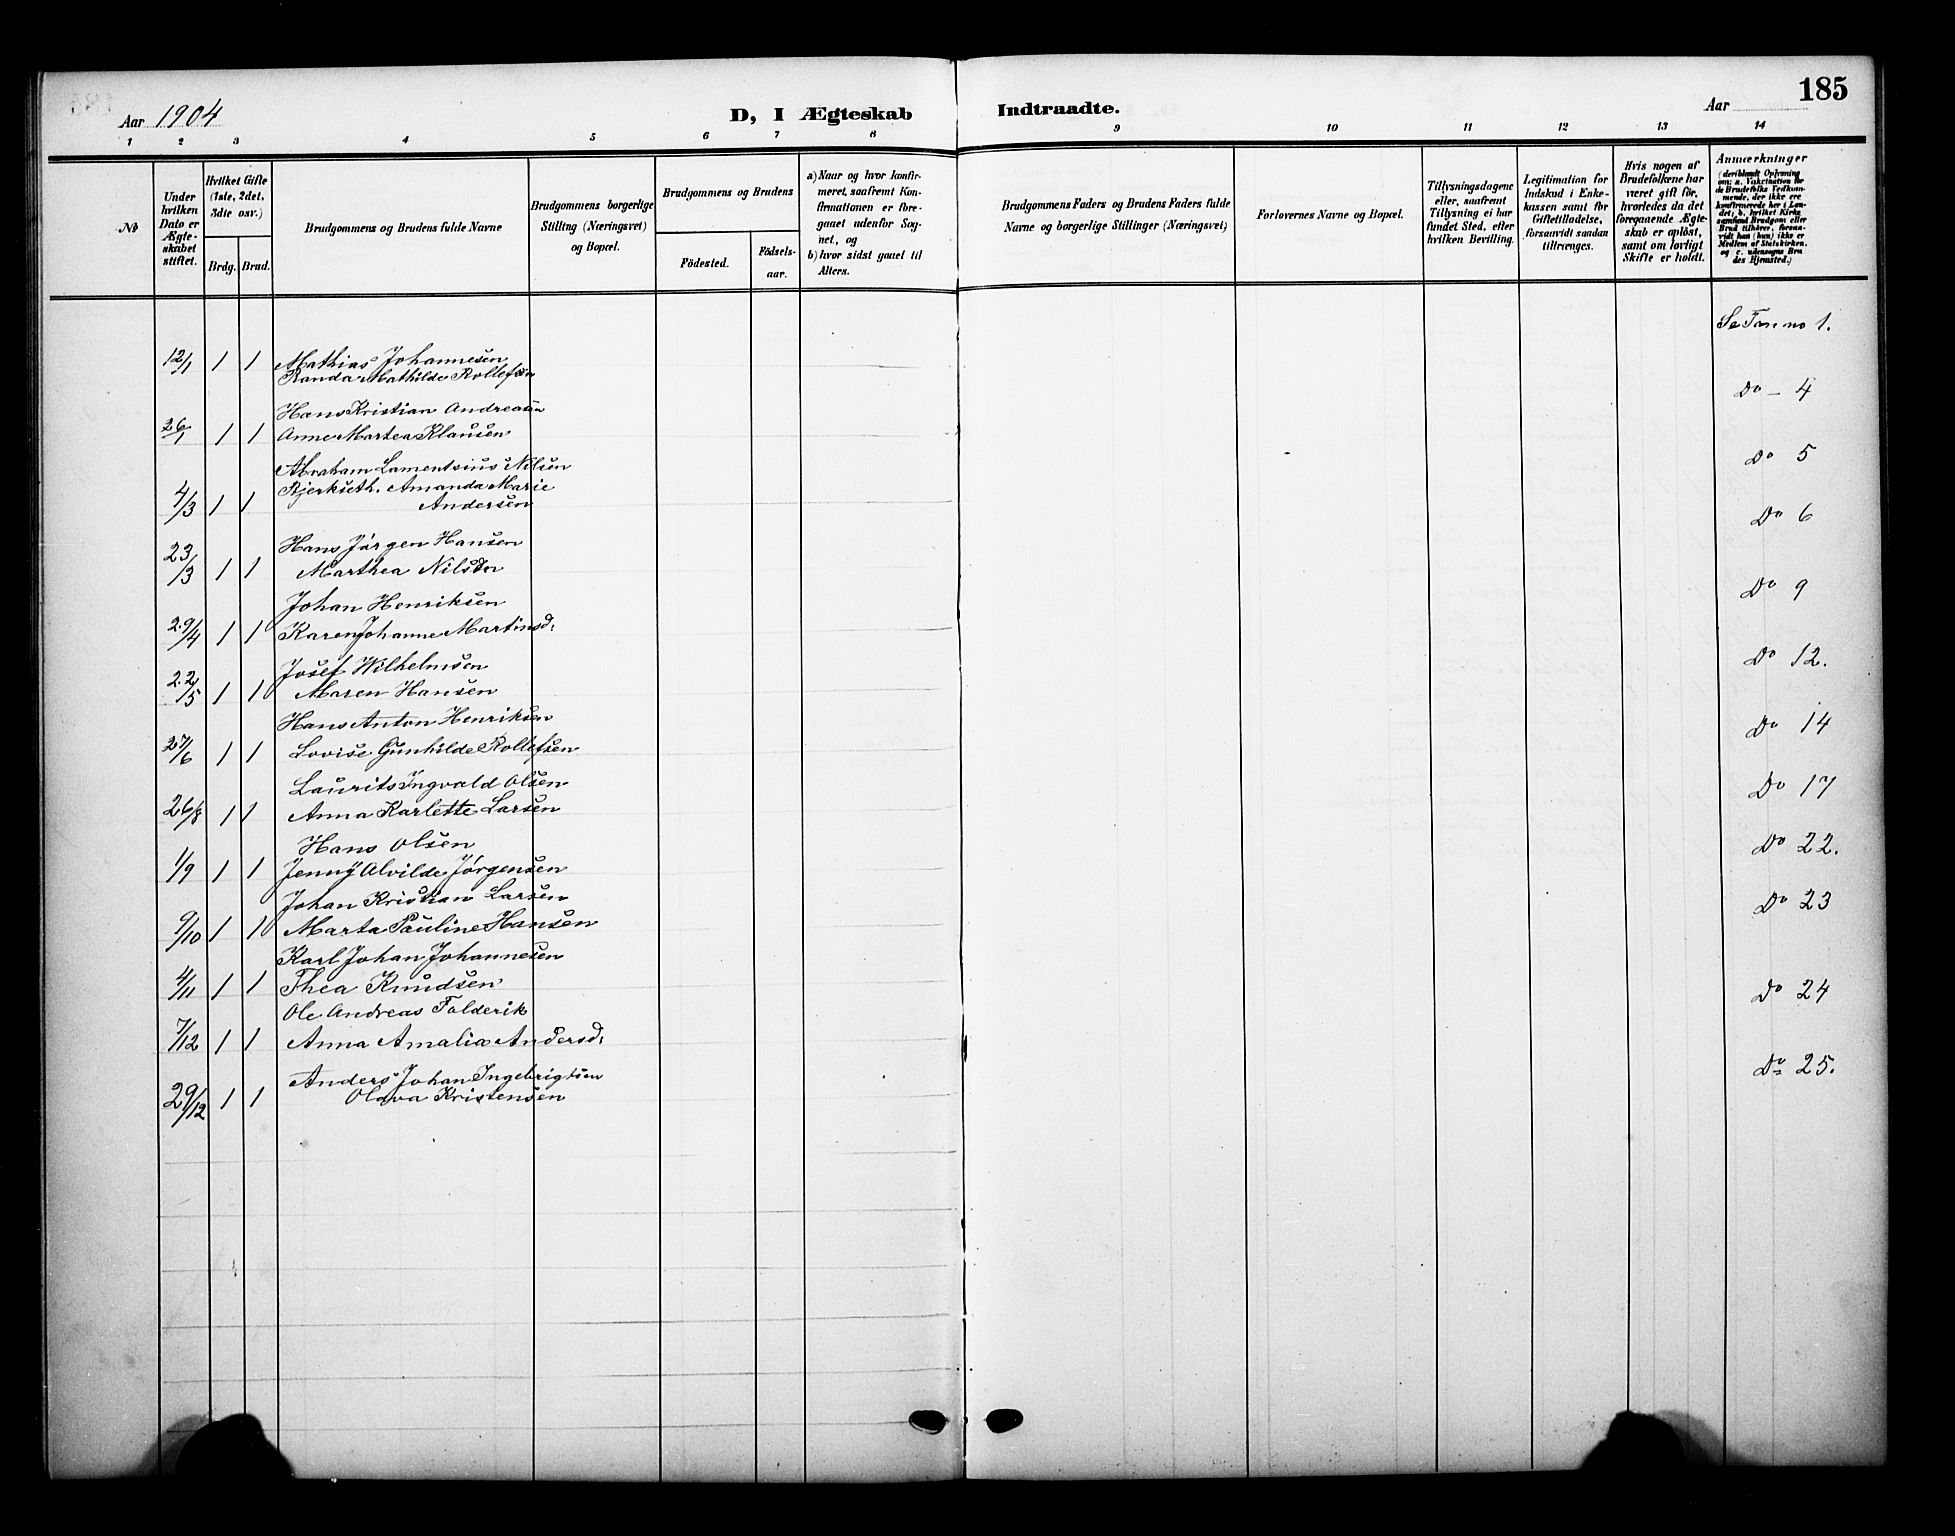 185
Aar 1904
D, I Ægteskab Indtraadte.
Aar
1 2 3 4 5 6 7 8 9 10 11 12 13 14
No
Under hvilken Dato er Ægteskabet stiftet.
Hvilket Gifte (1ste, 2det, 3die osv.)
Brdg. Brud.
Brudgommens og Brudens fulde Navne
Brudgommens borgerlige Stilling (Næringsvei) og Bopæl.
Brudgommens og Brudens
Födested.
Födselsaar.
a) Naar og hvor konfirmeret, saafremt Konfirmationen er foregaaet udenfor Sognet, og
b) hvor sidst gaaet til Alters.
Brudgommens Faders og Brudens Faders fulde Navne og borgerlige Stillinger (Næringsvei)
Forlovernes Navne og Bopæl.
Tillysningsdagene eller, saafremt Tillysning ei har fundet Sted, efter hvilken Bevilling.
Legitimation for Indskud i Enkekassen samt for Giftetilladelse, forsaavidt saadan tiltrenges.
Hvis nogen af Brudefolkene har været gift för, hvorledes da det foregaaende Ægteskab er oplöst, samt om lovligt Skifte er holdt.
Anmærkninger (deriblandt Oplysning om: a. Vaccination for de Brudefolks Vedkommende, der ikke ere konfirmerede her i Landet; b. hvilket Kirkesamfund Brudgom eller Brud tilhörer, forsaavidt han (hun) ikke er Medlem af Statskirken, og c. udensogns Brudes Hjemsted.)
Se no 1.
12/1 1 1 Mathias Johannesen
Randa Mathilde Rollefsen
Do — 4
Hans Kristian Andreasen
26/1 1 1 Anne Martea Klausen
Do 5
Abraham Lamentsius Nilsen
Bjerkseth. Amanda Marie
4/3 1 1 Andersen
Do 6
Hans Jørgen Hansen
23/3 1 1 Marthea Nilsen
Do 9
Johan Henriksen
29/4 1 1 Karen Johanne Martinsd:
Do 12.
Josef Wilhelmsen
22/5 1 1 Maren Hansen
Do 14
Hans Anton Henriksen
27/6 1 1 Lovise Gunhilde Rollefsen
Do 17
Laurits Ingvald Olsen
26/8 1 1 Anna Karlette Larsen
Do 22.
Hans Olsen
1/9 1 1 Jenny Alvilde Jørgensen
Do 23
Johan Kristian Larsen
9/10 1 1 Marta Pauline Hansen
Karl Johan Johannesen
4/11 1 1 Thea Knudsen
Do 24
Ole Andreas Folderik
7/12 1 1 Anna Amalia Andersd:
Do 25.
Anders Johan Ingebrigtsen
29/12 1 1 Olava Kristensen